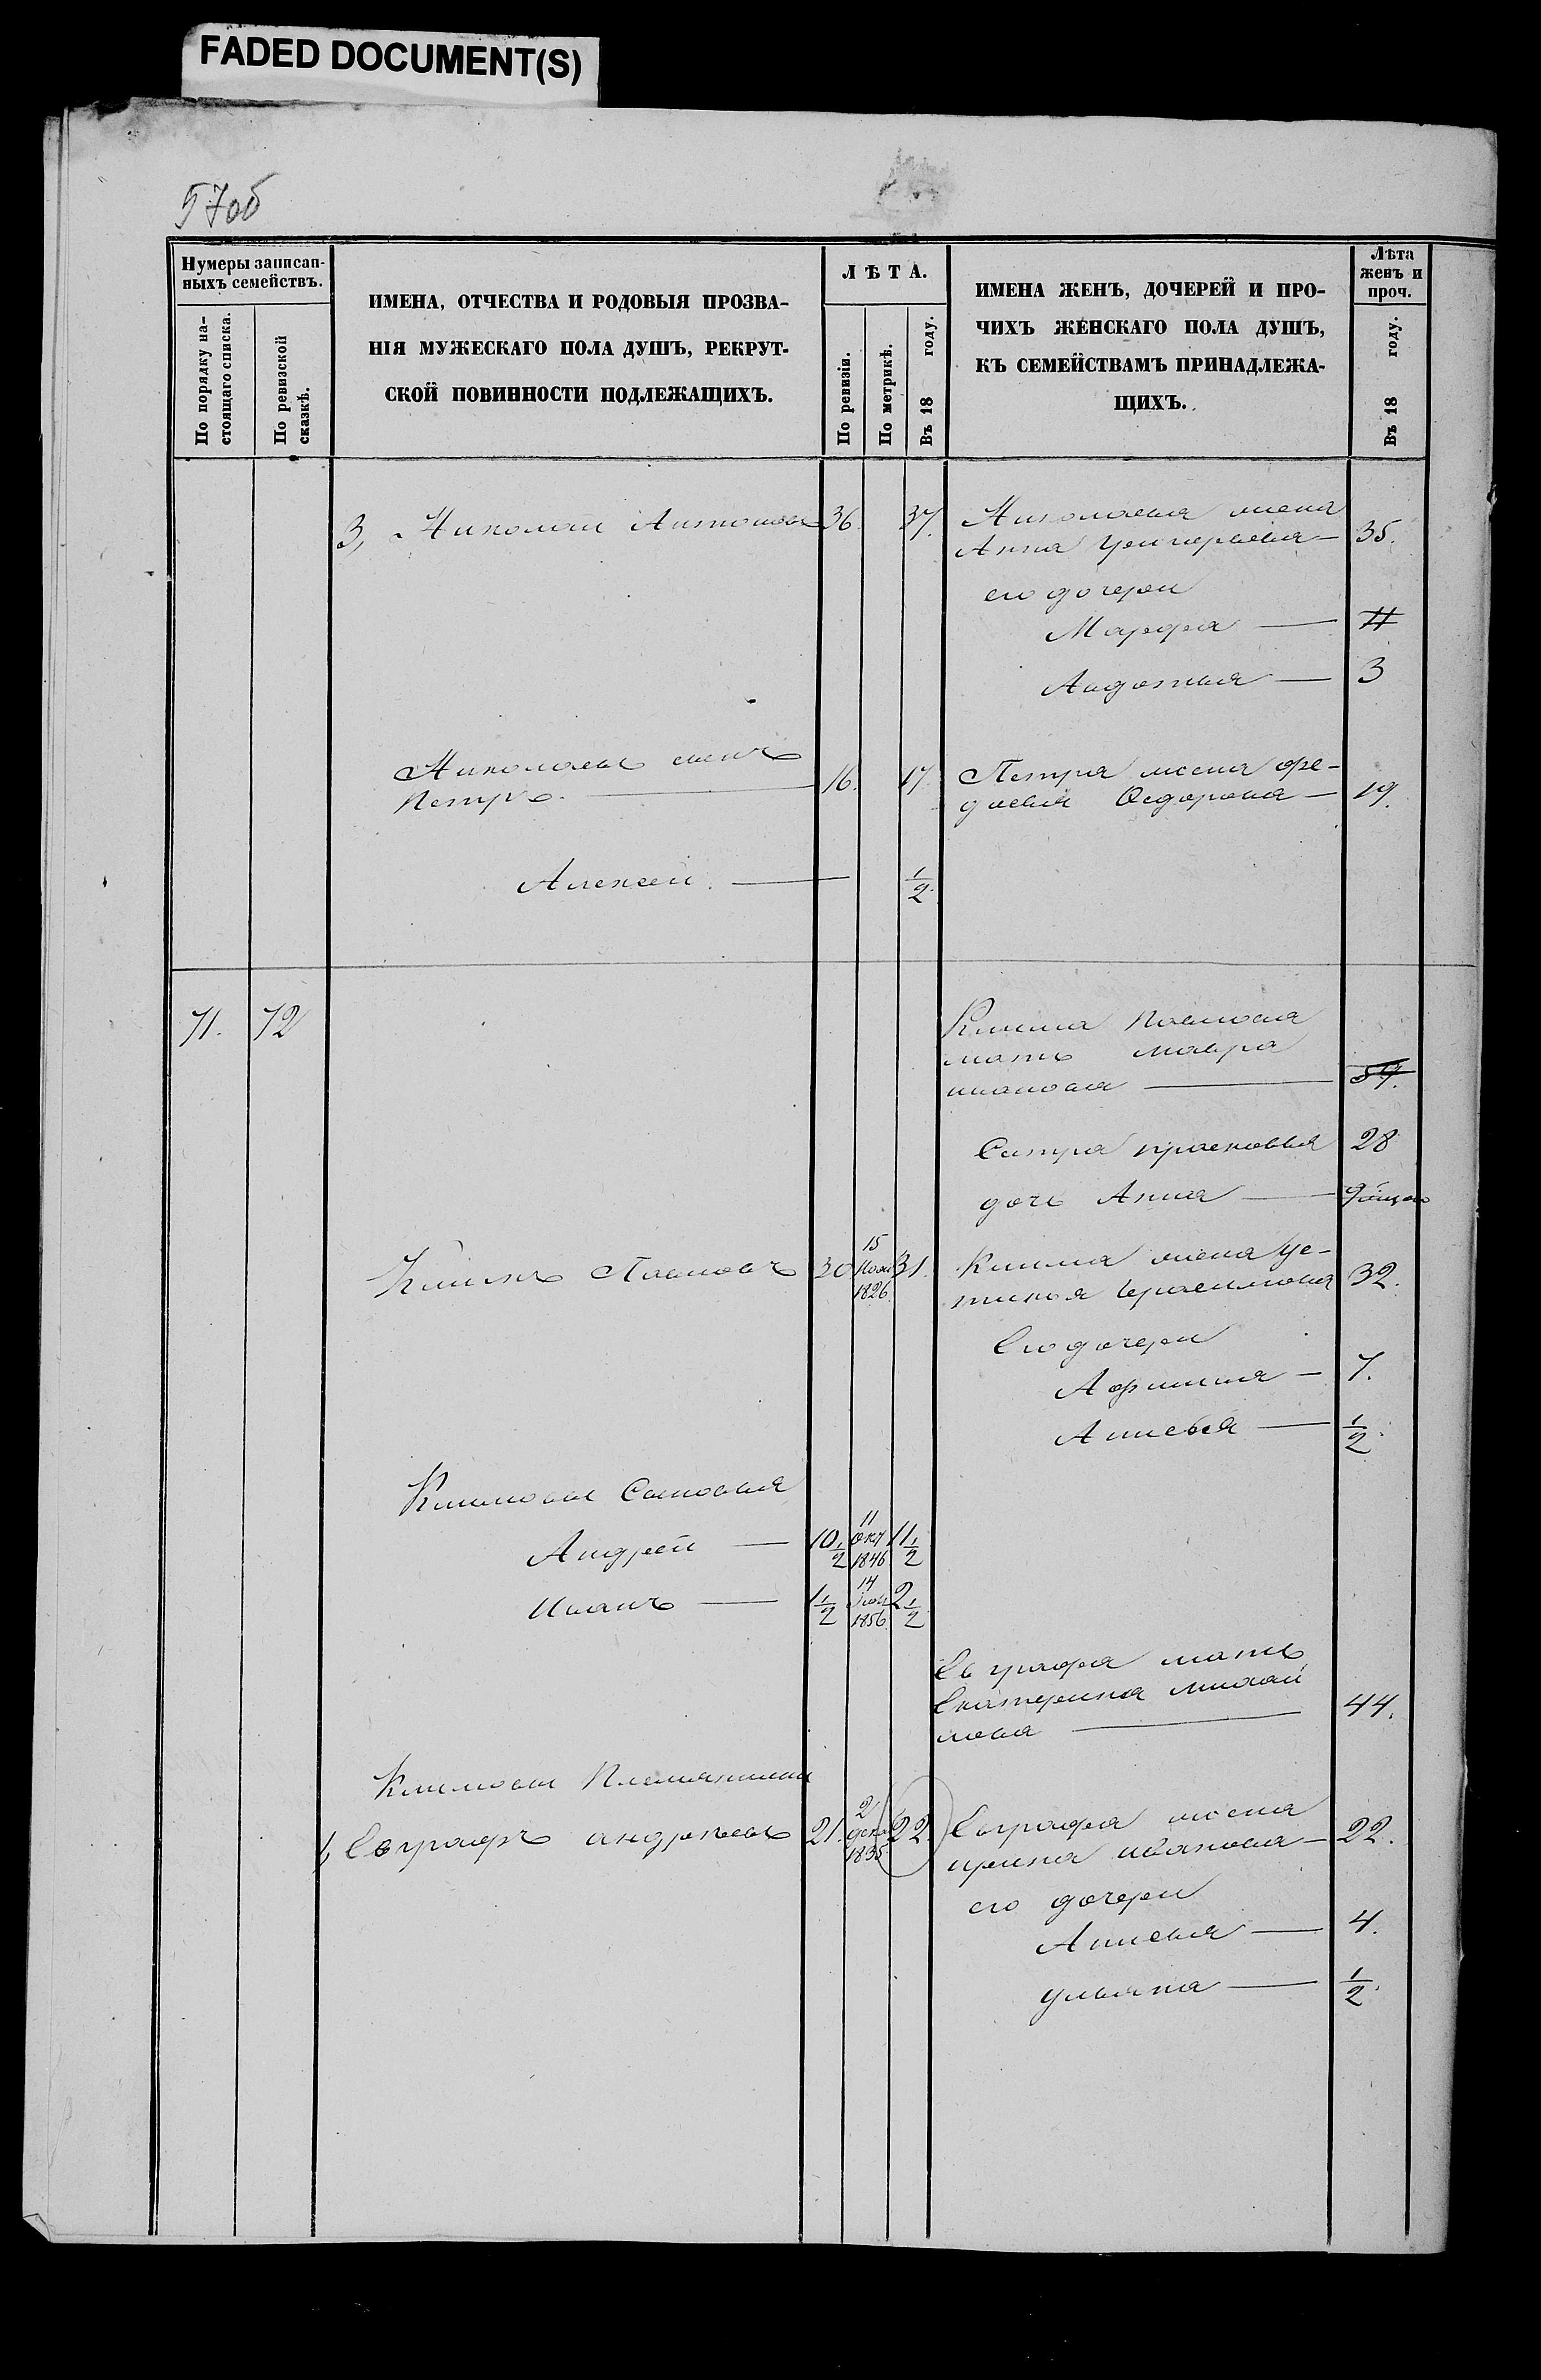 FADED DOCUMENT(S)
57об
Нумеры записан-
ныхъ семействъ.
По порядку на-
стоящаго списка.
По ревизской
сказкѣ.
ИМЕНА, ОТЧЕСТВА И РОДОВЫЯ ПРОЗВА-
НІЯ МУЖЕСКАГО ПОЛА ДУШЪ, РЕКРУТ-
СКОЙ ПОВИННОСТИ ПОДЛЕЖАЩИХЪ.
ЛѢТА.
По ревизіи.
По метрикѣ.
Въ 18 году.
ИМЕНА ЖЕНЪ, ДОЧЕРЕЙ И ПРО-
ЧИХЪ ЖЕНСКАГО ПОЛА ДУШЪ,
КЪ СЕМЕЙСТВАМЪ ПРИНАДЛЕЖА-
ЩИХЪ.
Лѣта
женъ и
проч.
Въ 18 году.
3, Николай Антоновъ 36. 37. Николаева жена
Анна 35.
его дочери
Марфа 11
Авдотья 3
Николаевъ сынъ
Петръ 16. 17. Петра жена Фе-
досья Федорова 19.
Алексей 1/2
71. 72 Клима Павлова
мать Мавра
иванова 59.
Сестра прасковья 28
дочь Анна
Климъ Павловъ 30 15 Нояб 1826 31. Клима жена Ус-
тинья Герасимова 32.
Его дочери
Афимья 7.
Анисья 1/2
Климовы Сыновья
Андрей 10 1/2 11 Окт 1846 11 1/2
Иванъ 1 1/2 14 1856 2 1/2
Евграфа мать
Екатерина михай
лова 44.
Климовы Племянники
1, Евграфъ андреевъ 21. 2 Дека 1835 22. Евграфа жена
ирина иванова 22.
его дочери
Анисья 4.
ульяна 1/2